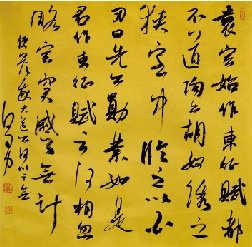 袁宏始作東征賦都
不道陶公胡奴誘之
狹室中臨以白
刃曰先公勳業如是
君作東征賦云何相忽
略宏窘蹙無計